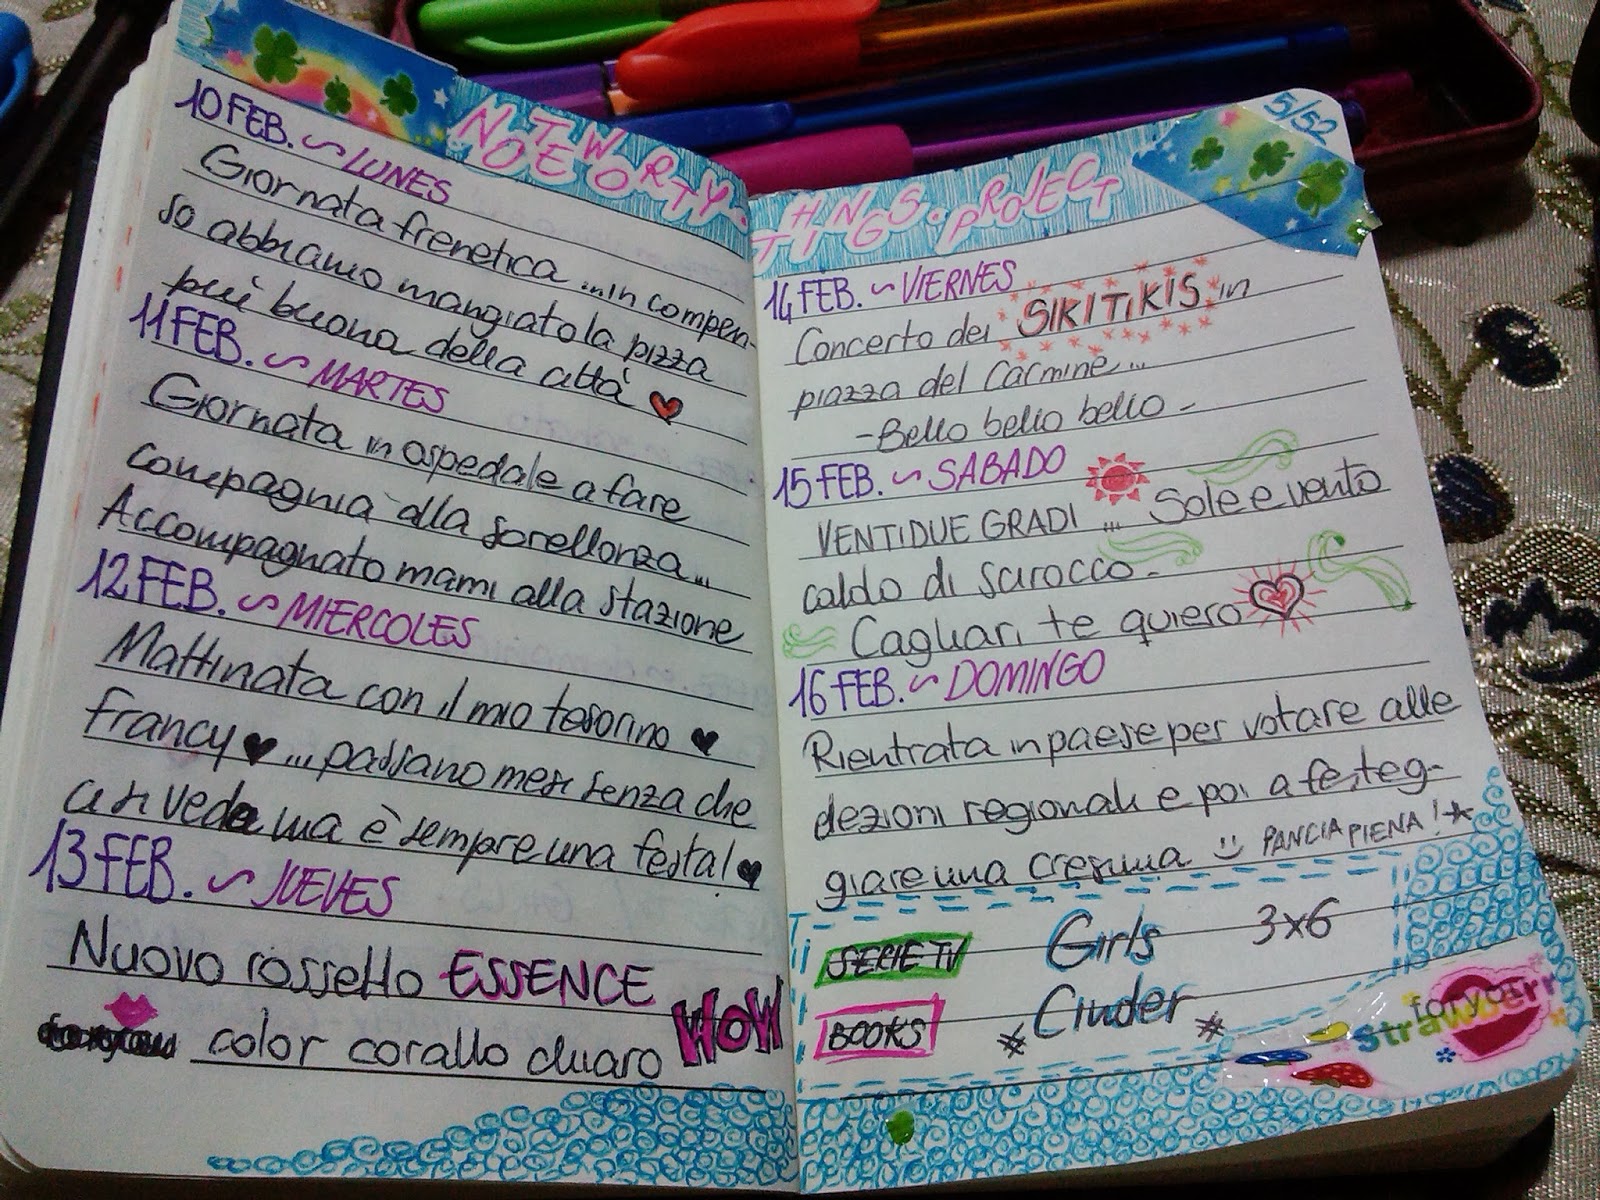 NOTEWORTY
10 FEB. ~ LUNES
Giornata frenetica ... in compen-
so abbiamo mangiato la pizza
più buona della città
11 FEB. ~ MARTES
Giornata in ospedale a fare
compagnia alla sorellonza...
Accompagnato mami alla stazione
12 FEB. ~ MIERCOLES
Mattinata con il mio tesorino
francy ... passano mesi senza che
ci si veda ma è sempre una festa!
13 FEB. ~ JUEVES
Nuovo rossetto ESSENCE
color corallo chiaro WOW
THINGS. PROJECT
5/52
14 FEB. ~ VIERNES
Concerto dei SIKITIKIS in
piazza del Carmine...
- Bello bello bello -
15 FEB. ~ SABADO
VENTIDUE GRADI ... Sole e vento
caldo di scirocco -
Cagliari te quiero
16 FEB. ~ DOMINGO
Rientrata in paese per votare alle
elezioni regionali e poi a festeg-
giare una cresima PANCIA PIENA!
SERIE TV Girls 3x6
BOOKS Cinder
for you